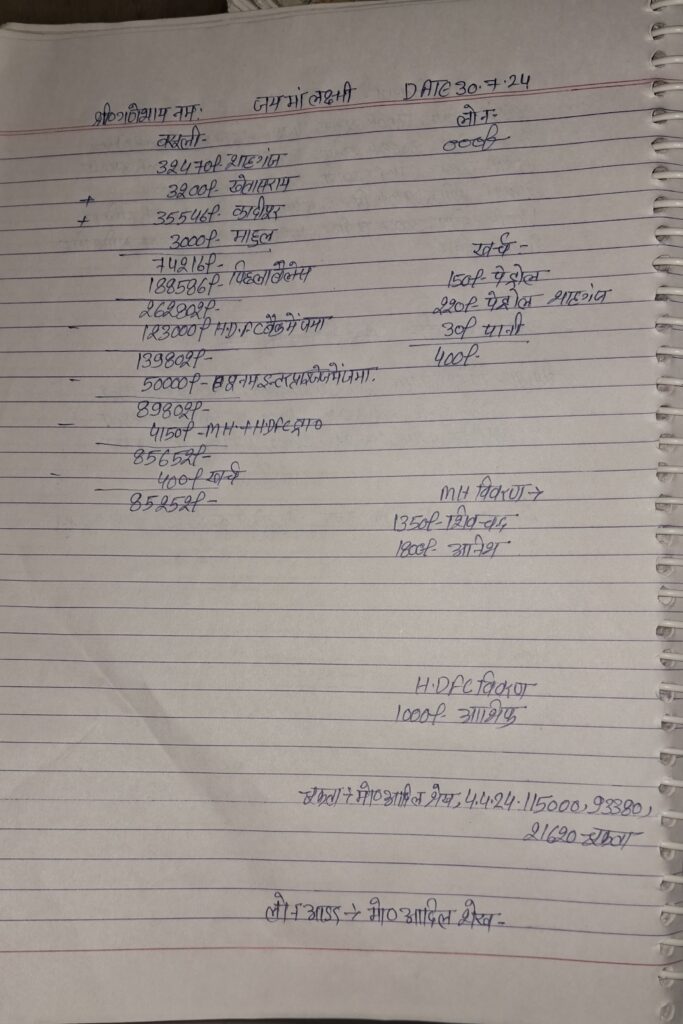 श्री गणेशाय नमः जय मां लक्ष्मी DATE 30.7.24
वसूली-
32470/- शाहगंज
+ 3200/- खेतासराय
+ 35546/- कादीपुर
3000/- माहुल
74216/-
188586/- पिछला बैलेंस
262802/-
- 123000/- H.D.F.C बैंक में जमा
139802/-
- 50000/- इन्टरप्राइजेज में जमा.
89802/-
- 4150/- MH + HDFC
85652/-
- 400/- खर्च
85252/-
लोन-
000/-
खर्च-
150/- पेट्रोल
220/- पेट्रोल शाहगंज
30/- पानी
400/-
MH विवरण →
1350/- शिवचन्द
1800/-
H.DFC विवरण
1000/- आशिफ
चुकता → मो० आदिल शेख, 4.4.24. 115000, 93380,
21620 चुकता
लोन आउट → मो० आदिल शेख-